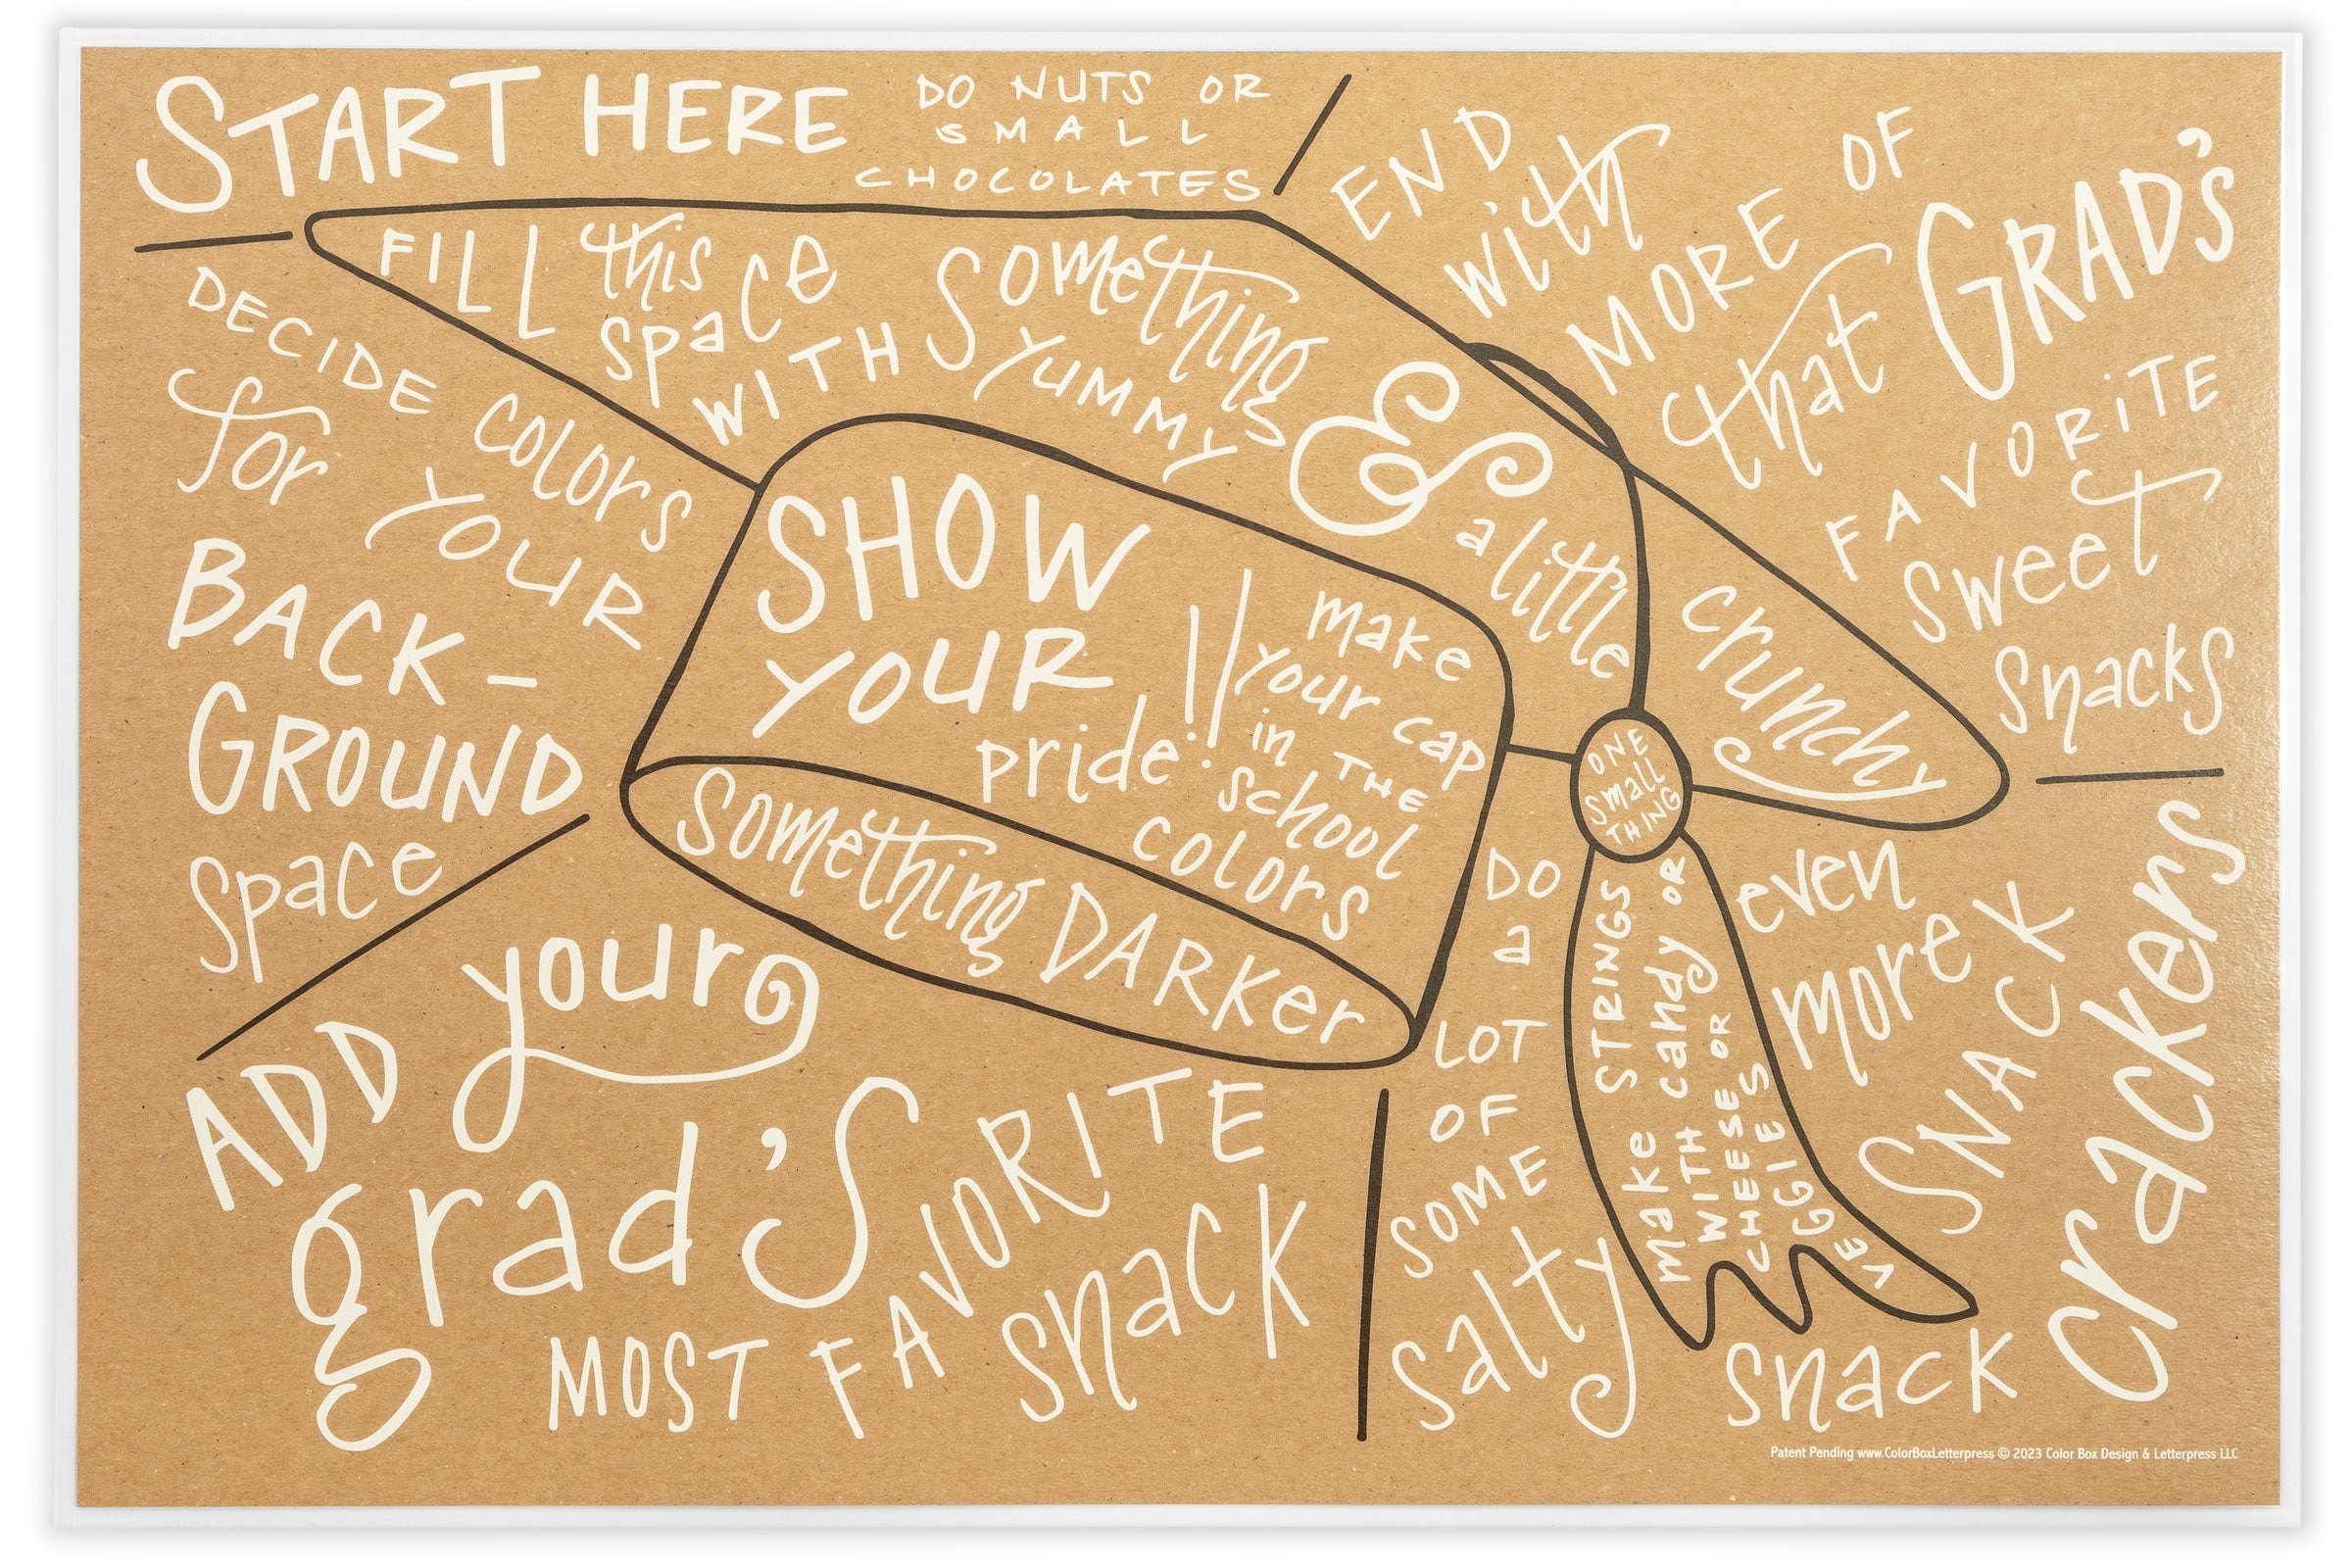 START HERE
DO NUTS OR
SMALL
CHOCOLATES
DECIDE COLORS
for YOUR
BACK-
GROUND
Space
FILL this
space
WITH Something
YUMMY
&
a little
crunchy
END
with
MORE OF
that GRAD'S
FAVORITE
Sweet
Snacks
SHOW
YOUR
pride!!
make
your cap
in THE
School
colors
Something DARKer
ONE
small
THING
make STRINGS
WITH candy OR
CHEESE OR
VEGGIES
ADD your
grad's
MOST FAVORITE
snack
DO
a
LOT
OF
SOME
salty
snack
even
more
SNACK
crackers
Patent Pending www.ColorBoxLetterpress © 2023 Color Box Design & Letterpress LLC